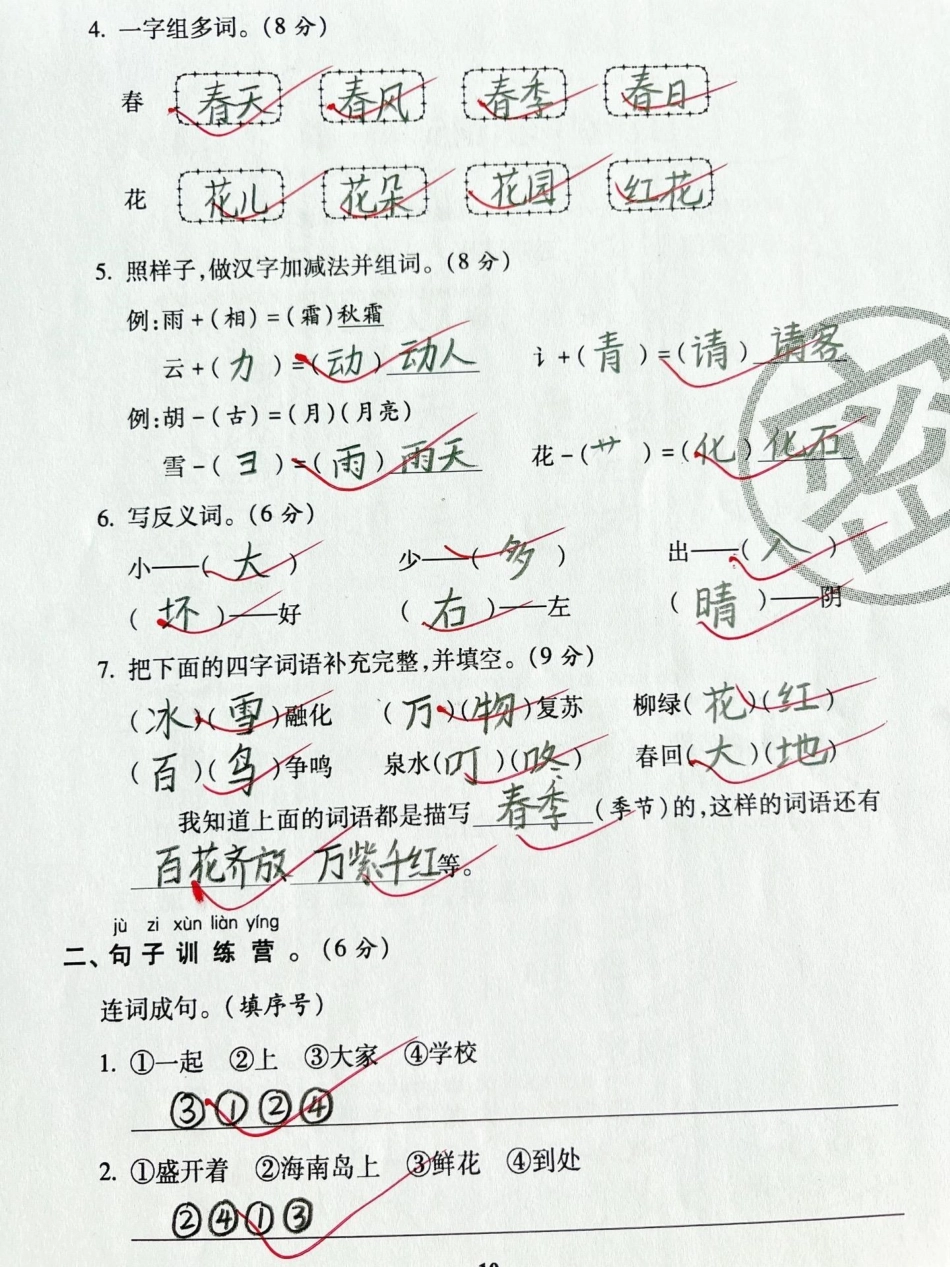 4. 一字组多词。(8 分)
春 春天 春风 春季 春日
花 花儿 花朵 花园 红花
5. 照样子,做汉字加减法并组词。(8 分)
例:雨+(相)=(霜)秋霜
云+(力)=(动)动人 讠+(青)=(请)请客
例:胡-(古)=(月)(月亮)
雪-(彐)=(雨)雨天 花-(艹)=(化)化石
密
6. 写反义词。(6 分)
小——(大) 少——(多) 出——(入)
(坏)——好 (右)——左 (晴)——阴
7. 把下面的四字词语补充完整,并填空。(9 分)
(冰)(雪)融化 (万)(物)复苏 柳绿(花)(红)
(百)(鸟)争鸣 泉水(叮)(咚) 春回(大)(地)
我知道上面的词语都是描写春季(季节)的,这样的词语还有
百花齐放 万紫千红等。
jù zi xùn liàn yíng
二、句子训练营。(6 分)
连词成句。(填序号)
1. ①一起 ②上 ③大家 ④学校
③①②④
2. ①盛开着 ②海南岛上 ③鲜花 ④到处
②④①③